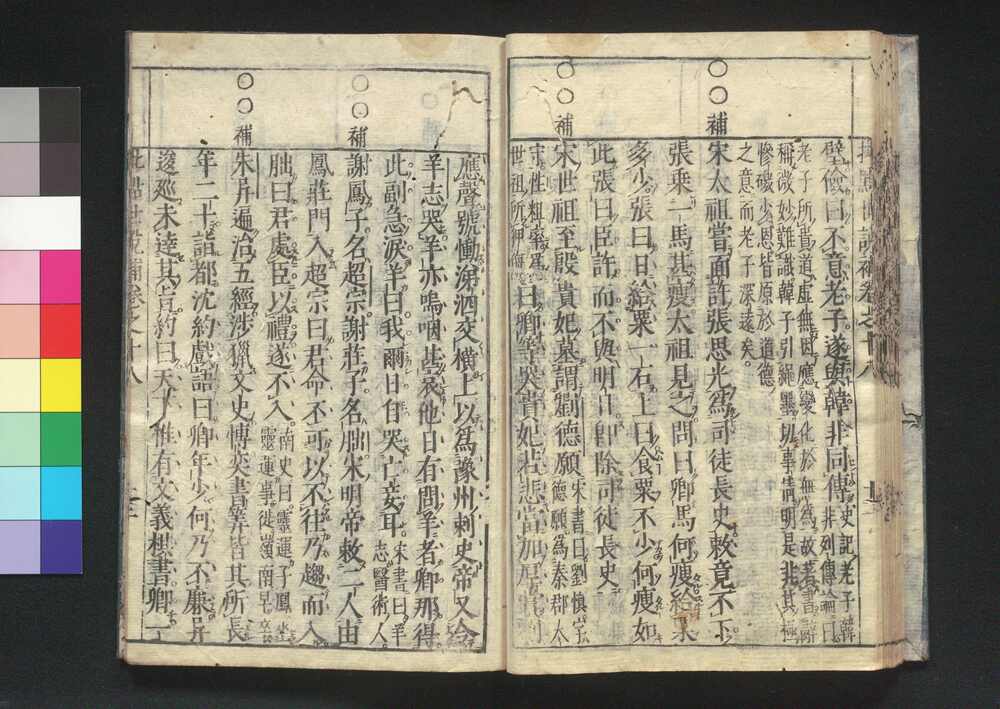 ○○補
○○補
壁儉曰不意老子遂與韓非同傳史記老子韓
非列傳論曰
老子所貴道虛無因應變化於無為故著書辭
稱微妙難識韓子引繩墨切事情明是非其極
慘礉少恩皆原於道德
之意而老子深遠矣
宋太祖嘗面許張思光為司徒長史敕竟不下
張乘一馬甚瘦太祖見之問曰卿馬何瘦給粟
多少張曰日給粟一石上曰食粟不少何瘦如
此張曰臣許而不與明日即除司徒長史
宋世祖至殷貴妃墓謂劉德願宋書曰劉慎宗
德願為秦郡太
守性粗率為
世祖所狎侮
曰卿等哭貴妃若悲當加厚
○○補
○○補
應聲號慟涕泗交橫上以為豫州刺史帝又令
羊志哭羊亦嗚咽甚哀他日有問羊者卿那得
此副急淚羊曰我爾日自哭亡妾耳宋書曰羊
志醫術人
謝鳳子名超宗謝莊子名朏宋明帝敕二人由
鳳莊門入超宗曰君命不可以不往乃趨而入
朏曰君處臣以禮遂不入南史曰靈運子鳳坐
靈運事徙嶺南早卒
朱异遍治五經涉獵文史博奕書筭皆其所長
年二十詣都沈約戲語曰卿年少何乃不廉异
逡巡未達其旨約曰天下惟有文義棊書卿一
批點世說補卷之十八